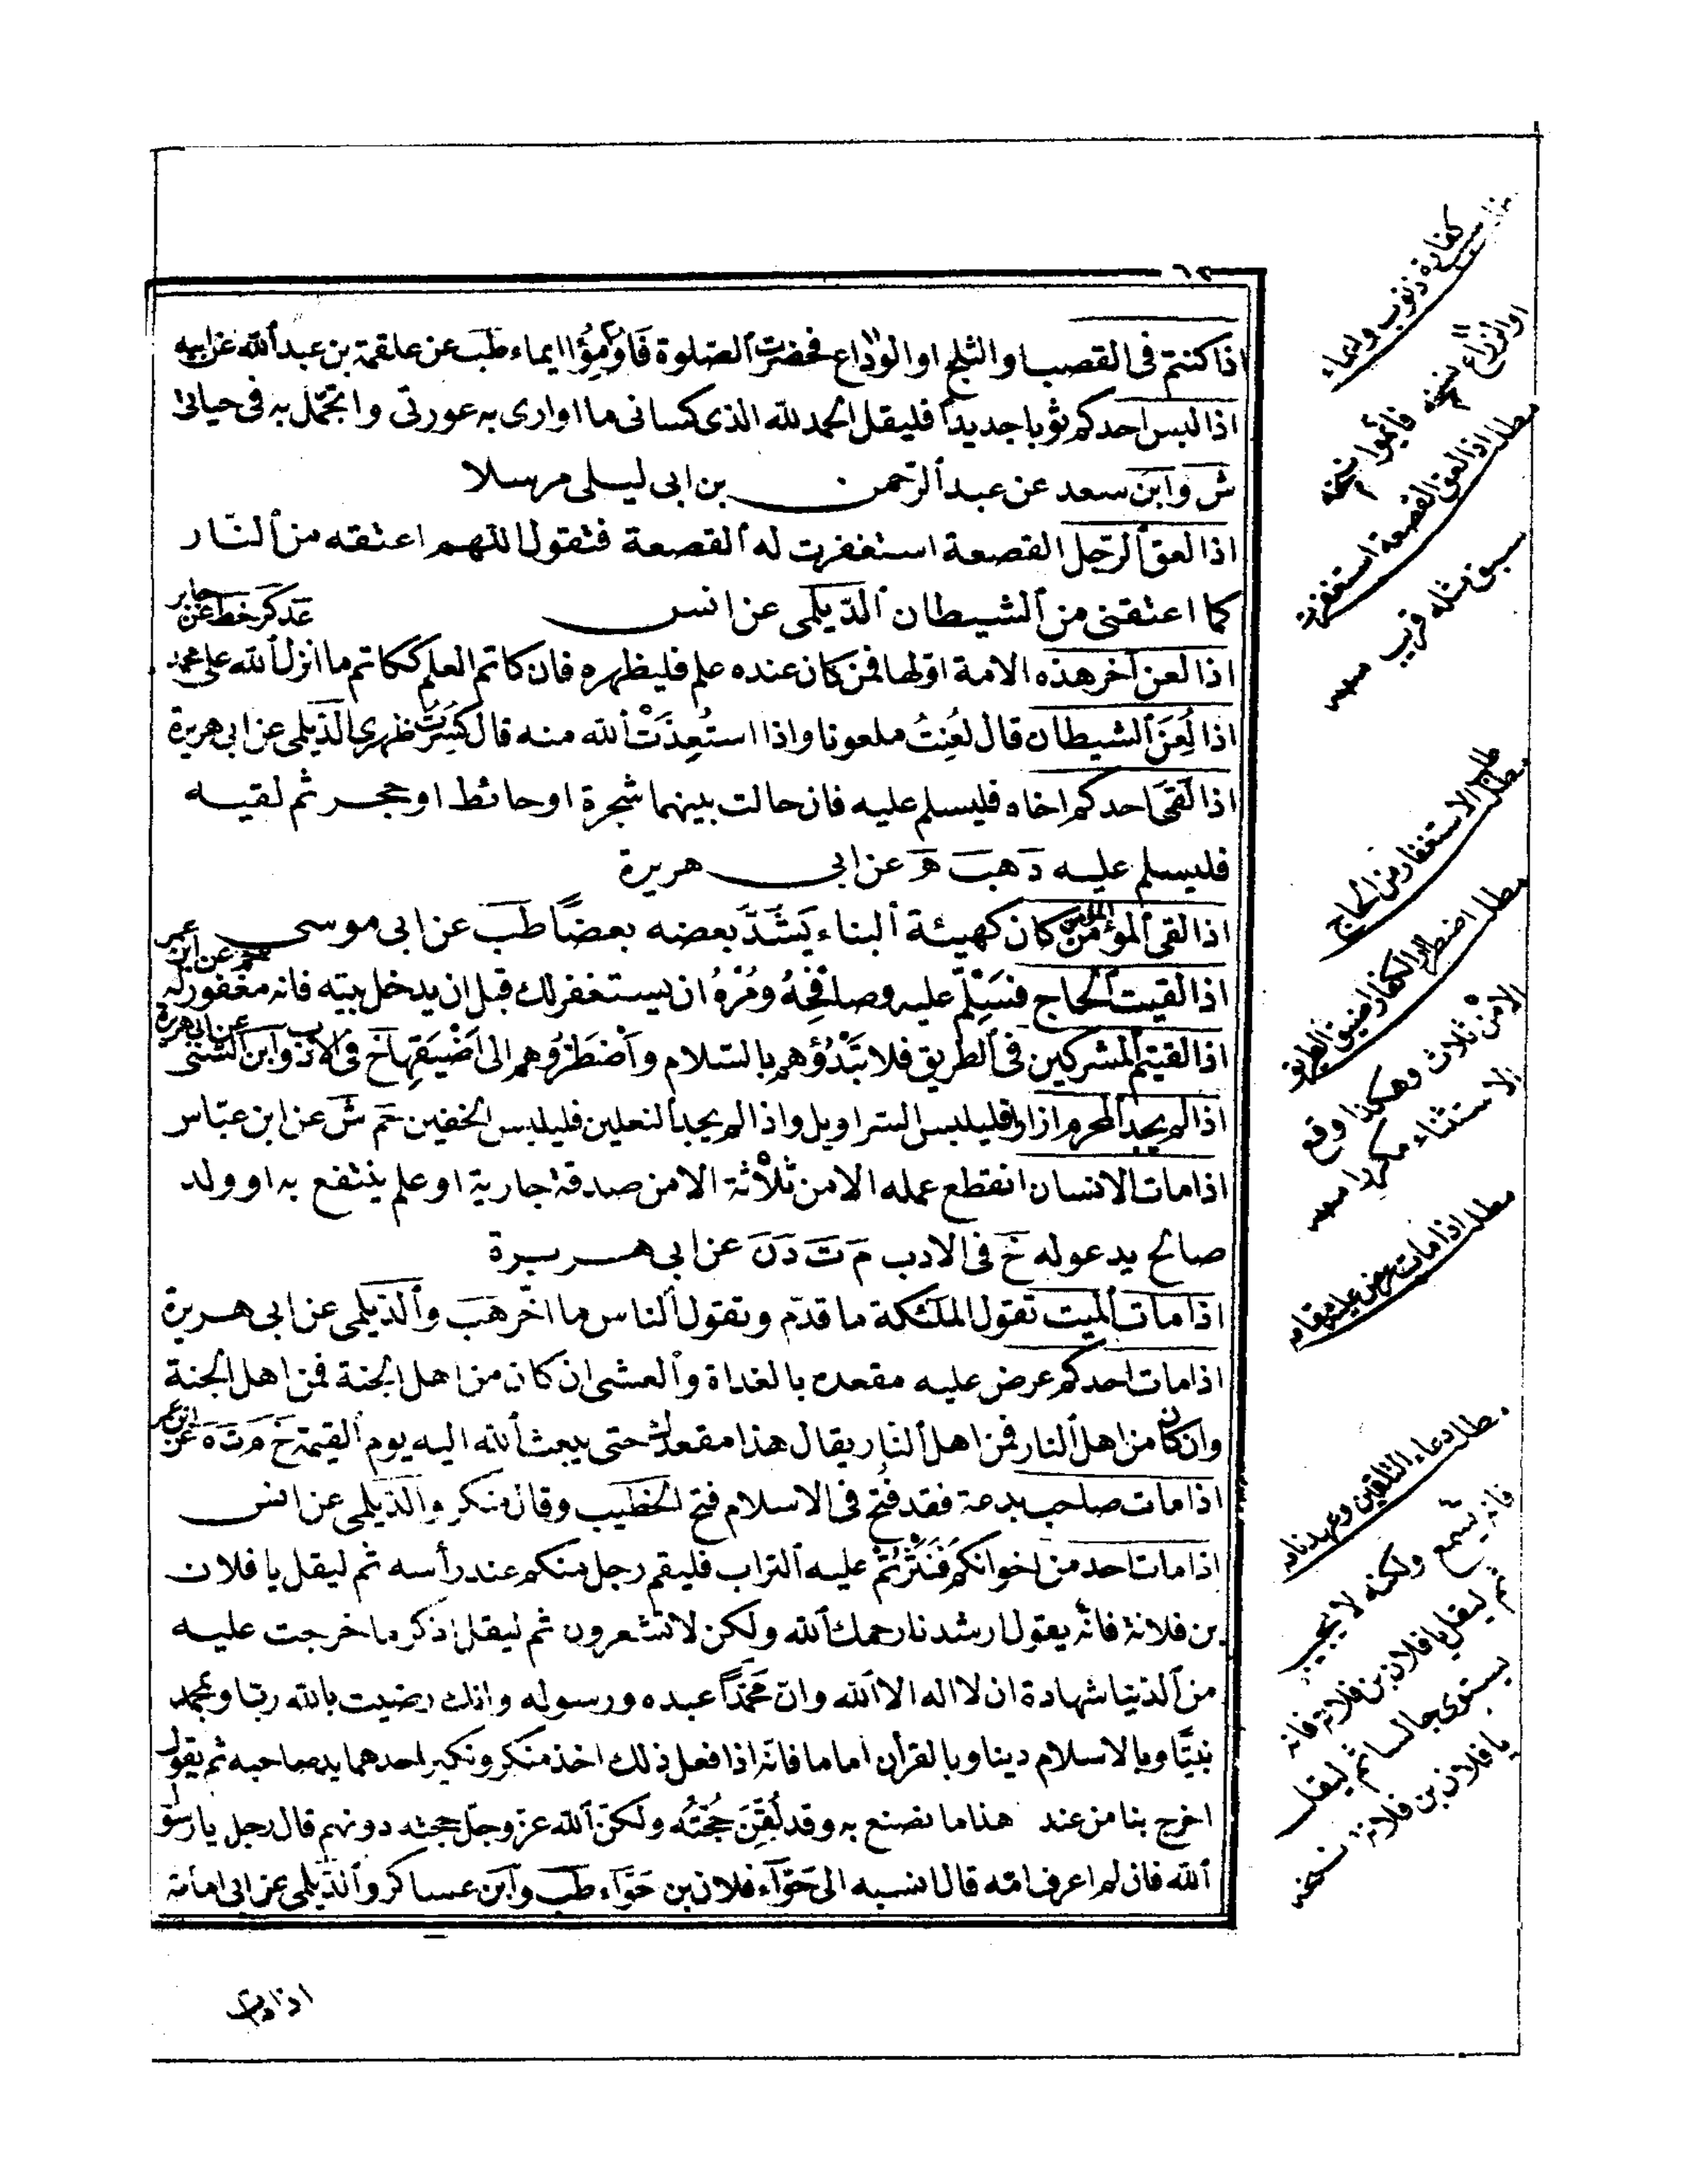 ٦٢
اذا كنتم فى القصب او الثلج او الوداع فحضرت الصلوة فَاَوْمِؤُا ايماء طب عن علقمة بن عبد الله عن ابيه
اذا لبس احدكم ثوبا جديدا فليقل الحمد لله الذى كسانى ما اوارى به عورتى واتجمل به فى حياتى
ش وابن سعد عن عبد الرحمن بن ابى ليلى مرسلا
اذا لعق الرجل القصعة استغفرت له القصعة فتقول اللهم اعتقه من النار
كما اعتقنى من الشيطان الديلمى عن انس
عد كر خط عن جابر
اذا لعن آخر هذه الامة اولها فمن كان عنده علم فليظهره فان كاتم العلم ككاتم ما انزل الله على محمد
اذا لُعِنَ الشيطان قال لُعِنْتُ ملعونا واذا استُعِذَتْ الله منه قال كَسَرْتَ ظهرى الديلمى عن ابى هريرة
اذا لَقىَ احدكم اخاه فليسلم عليه فان حالت بينهما شجرة او حائط او حجر ثم لقيه
فليسلم عليه د هب ه عن ابى هريرة
اذا لقى المؤمن المؤمن كان كهيئة البناء يَشُدّ بعضه بعضًا طب عن ابى موسى
حم عن ابن عمر
اذا لقيت الحاج فَسَلِّمْ عليه وصافحْهُ ومُرْهُ ان يستغفر لك قبل ان يدخل بيته فانه مغفور له
اذا لقيتم المشركين فى الطريق فلا تَبْدَؤُهم بالسلام واضطرُّوهم الى اَضْيَقِها خ فى الادب وابن السنى
عن ابى هريرة
اذا لم يجد المحرم ازارا فليلبس السراويل واذا لم يجد النعلين فليلبس الخفين حم ش عن ابن عباس
اذا مات الانسان انقطع عمله الا من ثلاثة الا من صدقة جارية او علم ينتفع به او ولد
صالح يدعو له خ فى الادب م ت د ن عن ابى هريرة
اذا مات الميت تقول الملئكة ما قدّم وتقول الناس ما اخّر هب والديلمى عن ابى هريرة
اذا مات احدكم عرض عليه مقعده بالغداة والعشى ان كان من اهل الجنة فمن اهل الجنة
وان كان من اهل النار فمن اهل النار يقال هذا مقعدك حتى يبعثك الله اليه يوم القيمة خ م ت ه عن ابن عمر
اذا مات صاحب بدعة فقد فُتح فى الاسلام فتح الخطيب وقال منكر والديلمى عن انس
اذا مات احد من اخوانكم فَنَثَرْتُمْ عليه التراب فليقم رجل منكم عند رأسه ثم ليقل يا فلان
بن فلانة فانه يقول ارشدنا رحمك الله ولكن لا تشعرون ثم ليقل اذكر ما خرجت عليه
من الدنيا شهادة ان لا اله الا الله وان محمّدًا عبده ورسوله وانك رضيت بالله ربا وبمحمد
نبيًّا وبالاسلام دينا وبالقرأن اماما فانه اذا فعل ذلك اخذ منكر ونكير احدهما يد صاحبه ثم يقول
اخرج بنا من عند هذا ما نصنع به وقد لُقِّنَ حُجّتَهُ ولكن الله عز وجل حجته دونهم قال رجل يا رسول
الله فان لم اعرف امه قال انسبه الى حَوّآء فلان بن حَوّآء طب وابن عساكر والديلمى عن ابى امامة
كفارة ذنوب وايماء
او الزراع نسخه
فاتموا نسخه
مطلب اذا لعق القصعة استغفرت
سبق مثله قريب
مطلب طلب الاستغفار من الحاج
مطلب اضطروا الكفار اضيق الطريق
الا من ثلاث وهكذا وقع
الاستثناء مكررا
مطلب اذا مات عرض عليه مقعده
مطلب دعاء التلقين وعهدنامه
فانه يسمع ولكنه لا يجيب
ثم ليقل يا فلان بن فلانة فانه
يستوى جالسا ثم ليقل
يا فلان بن فلانة نسخه
اذا مات